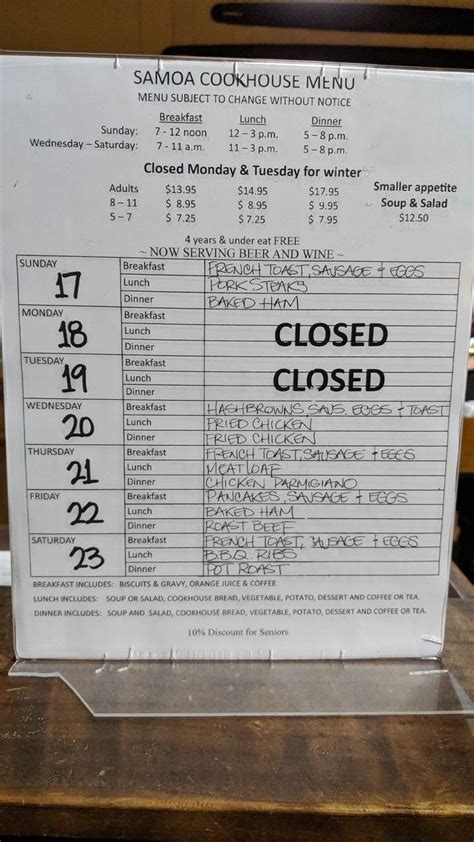 SAMOA COOKHOUSE MENU
MENU SUBJECT TO CHANGE WITHOUT NOTICE
Breakfast Lunch Dinner
Sunday: 7 - 12 noon 12 – 3 p.m. 5 – 8 p.m.
Wednesday – Saturday: 7 - 11 a.m. 11 – 3 p.m. 5 – 8 p.m.
Closed Monday & Tuesday for winter
Adults $13.95 $14.95 $17.95 Smaller appetite
8 – 11 $ 8.95 $ 8.95 $ 9.95 Soup & Salad
5 – 7 $ 7.25 $ 7.25 $ 7.95 $12.50
4 years & under eat FREE
~ NOW SERVING BEER AND WINE ~
SUNDAY 17 Breakfast FRENCH TOAST, SAUSAGE + EGGS
Lunch PORK STEAKS
Dinner BAKED HAM
MONDAY 18 Breakfast
Lunch CLOSED
Dinner
TUESDAY 19 Breakfast
Lunch CLOSED
Dinner
WEDNESDAY 20 Breakfast HASHBROWNS, SAUS. EGGS + TOAST
Lunch FRIED CHICKEN
Dinner FRIED CHICKEN
THURSDAY 21 Breakfast FRENCH TOAST, SAUSAGE + EGGS
Lunch MEATLOAF
Dinner CHICKEN PARMIGIANO
FRIDAY 22 Breakfast PANCAKES, SAUSAGE + EGGS
Lunch BAKED HAM
Dinner ROAST BEEF
SATURDAY 23 Breakfast FRENCH TOAST, SAUSAGE + EGGS
Lunch B.B.Q. RIBS
Dinner POT ROAST
BREAKFAST INCLUDES: BISCUITS & GRAVY, ORANGE JUICE & COFFEE.
LUNCH INCLUDES: SOUP OR SALAD, COOKHOUSE BREAD, VEGETABLE, POTATO, DESSERT AND COFFEE OR TEA.
DINNER INCLUDES: SOUP AND SALAD, COOKHOUSE BREAD, VEGETABLE, POTATO, DESSERT AND COFFEE OR TEA.
10% Discount for Seniors